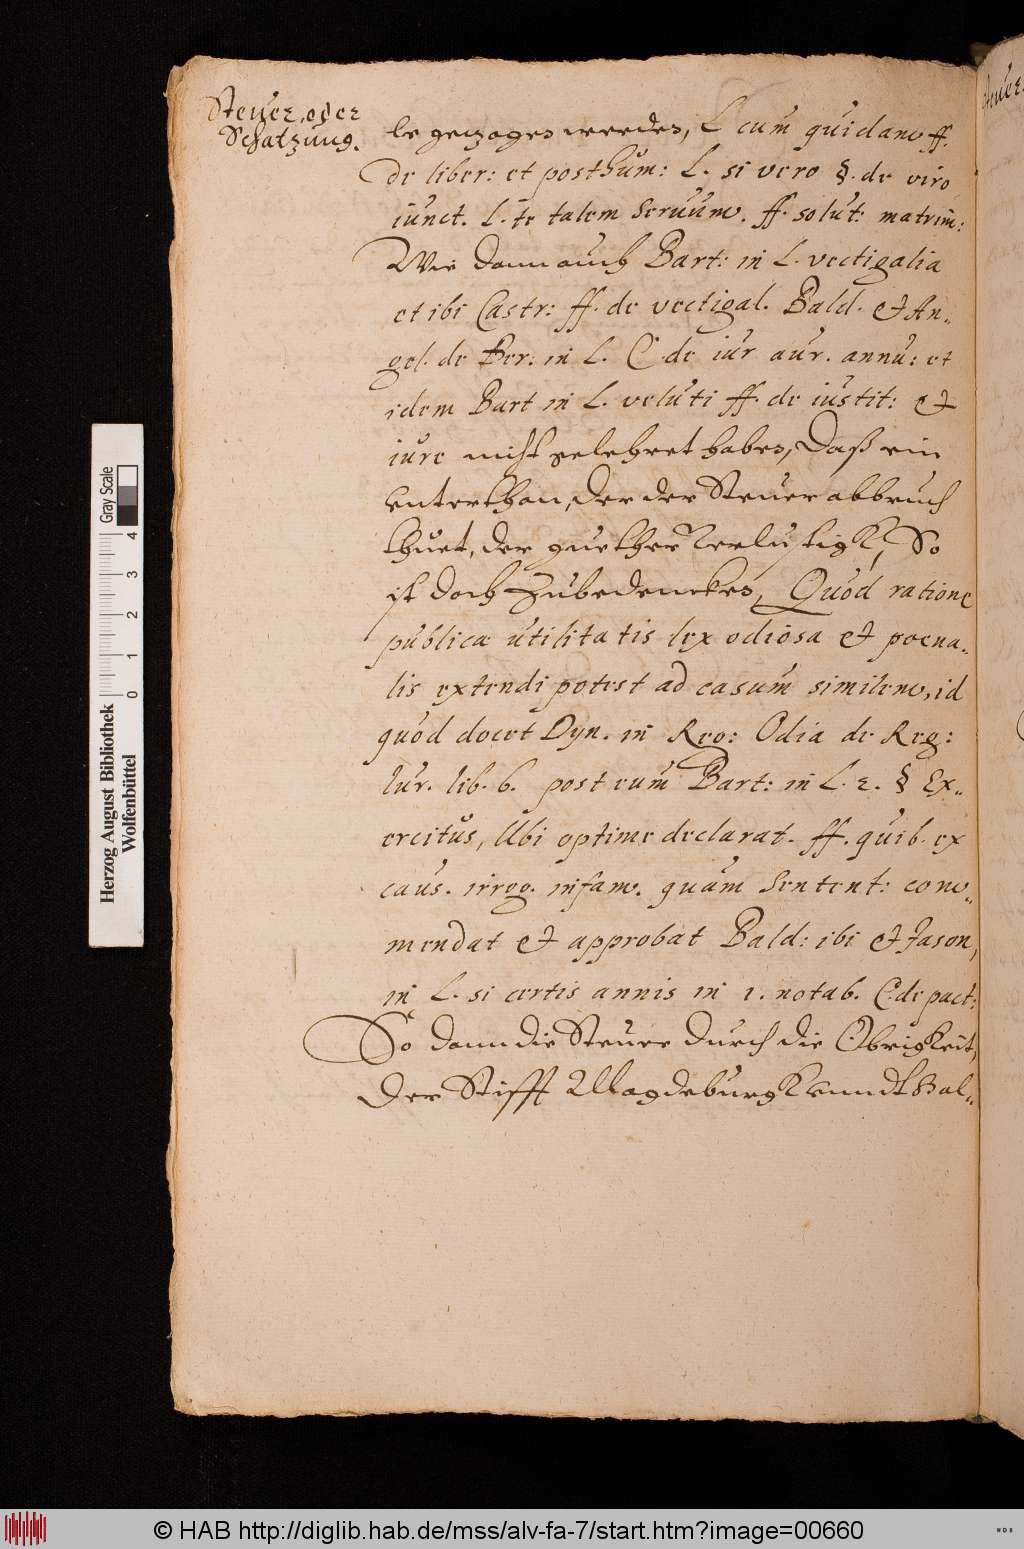 Steuer, oder
Schatzung.
le gezogen werden, L cum quidam ff.
de liber: et posthum: L. si vero §. de viro
iunct. L. te talem seruum. ff. solut: matrim:
Wie dann auch Bart: in L. vectigalia
et ibi Castr: ff. de vectigal. Bald. et An-
gel. de Per: in L. C de iur aur. annu: et
idem Bart in L. veluti ff. de iustit: et
iure nicht gelehret haben, Daß ein
Unterthan, der der Steuer abbruch
thuet, der guether verlustigk, So
ist doch Zubedencken, Quod ratione
publicæ utilitatis lex odiosa et poena-
lis extendi potest ad casum similem, id
quod docet Dyn. in Reg: Odia de Reg:
Iur. lib. 6. post eum Bart: in L. 2. § Ex-
ercitus, Ubi optime declarat. ff. quib. ex
caus. irrog. infam. quam Sentent: com-
mendat et approbat Bald: ibi et Jason,
in L. si certis annis in 1. notab. C. de pact:
So dann die Steuer durch die Obrigkeit,
der Stifft Magdeburgk unndt Hal-
Herzog August Bibliothek
Wolfenbüttel
0 1 2 3 4
Gray Scale
© HAB http://diglib.hab.de/mss/alv-fa-7/start.htm?image=00660